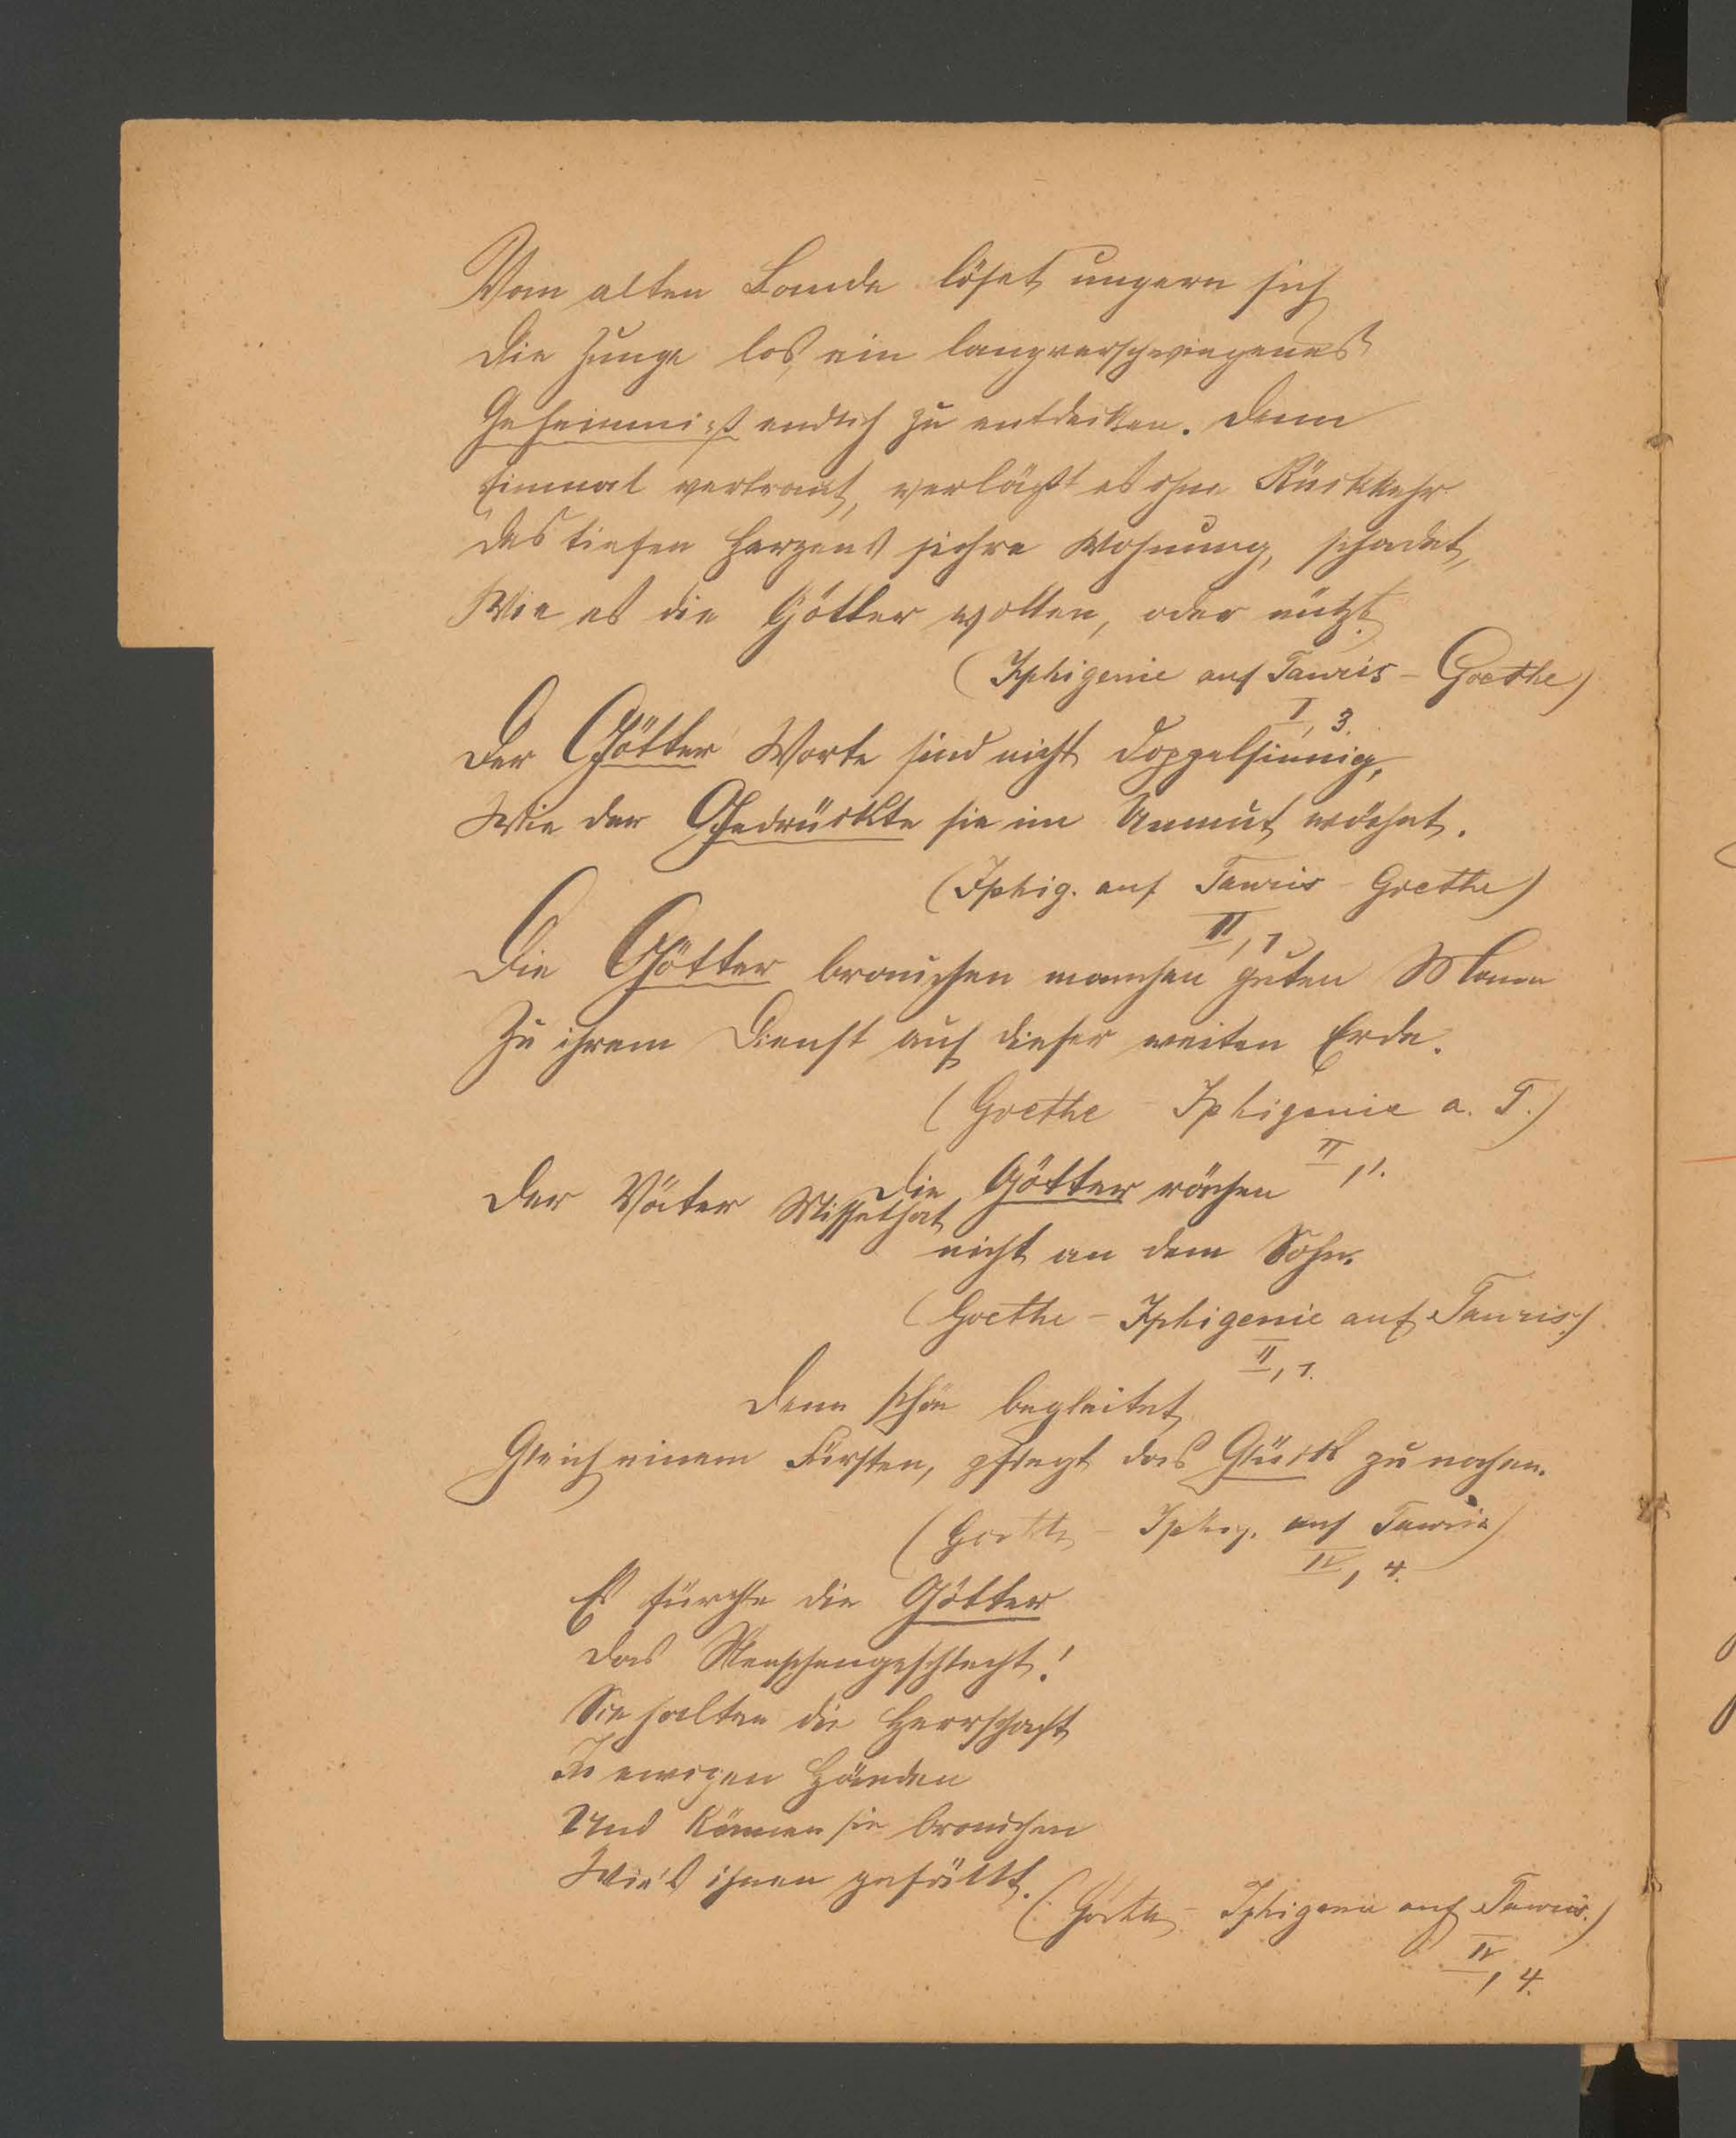 Vom alten Bande löset ungern sich
Die Zunge los, ein langverschwiegenes
Geheimniß endlich zu entdecken. Denn
Einmal vertraut, verläßt es ohne Rückkehr
Des tiefen Herzens sichre Wohnung, schadet,
Wie es die Götter wollen, oder nützt.
(Iphigenie auf Tauris – Goethe)
I, 3.
Der Götter Worte sind nicht doppelsinnig,
Wie der Gedrückte sie im Unmut wähnt.
(Iphig. auf Tauris – Goethe)
II, 1
Die Götter brauchen manchen guten Mann
Zu ihrem Dienst auf dieser weiten Erde.
(Goethe – Iphigenie a. T.)
II, 1.
Die Götter rächen
Der Väter Missethat
nicht an dem Sohn.
(Goethe – Iphigenie auf Tauris.)
II, 1.
Denn schön begleitet,
Gleich einem Fürsten, pflegt das Glück zu nahen.
(Goethe – Iphig. auf Tauris)
IV, 4.
Es fürchte die Götter
Das Menschengeschlecht!
Sie halten die Herrschaft
In ewigen Händen
Und können sie brauchen
Wie's ihnen gefällt.
(Goethe – Iphigenie auf Tauris.)
IV, 4.